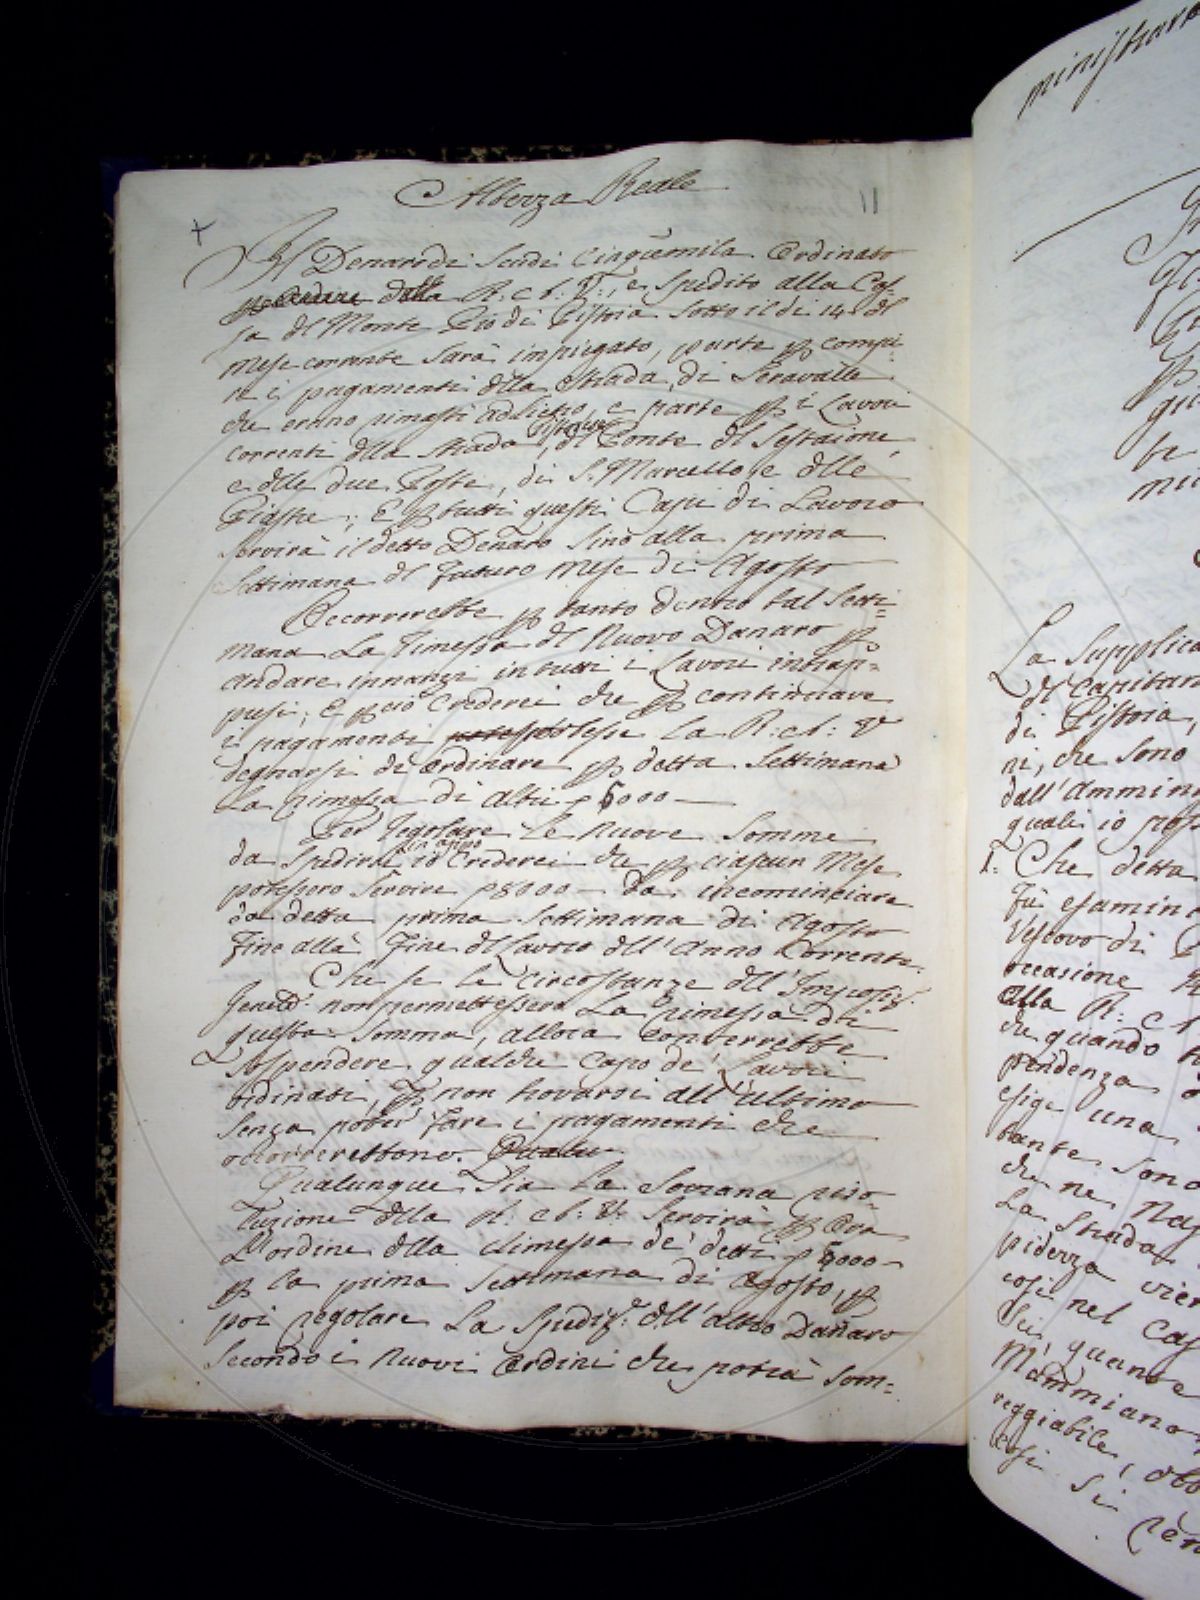 Altezza Reale
11
Il Denaro di Scudi Cinquemila Ordinato
dalla R: A: V:, e Spedito alla Cas-
sa del Monte Pio di Pistoia sotto il dì 14 del
mese corrente sarà impiegato, parte p compi-
re i pagamenti della Strada di Seravalle
che erano rimasti addietro, e parte p i Lavori
correnti della strada Pistoiese, del Ponte del Sestaione,
e delle due Poste, di S. Marcello, e delle
Piastre; E p tutti questi Capi di Lavoro
servirà il detto Denaro sino alla prima
Settimana del futuro mese di Agosto
Occorrerebbe p tanto dentro tal Setti-
mana La Rimessa del Nuovo Danaro p
andare innanzi in tutti i Lavori intrap-
presi; E p ciò Crederei che p continuare
i pagamenti volesse la R: A: V:
degnarsi di Ordinare p detta Settimana
La rimessa di altri 5000
Per Regolare le nuove Somme
da Spedirsi io Crederei che p ciascun Mese
potessero Servire 8000 da incominciare
da detta prima Settimana di Agosto
Fino alla Fine del Lavoro dell'Anno Corrente.
Che se le Circostanze dell'Imposiz.
Generale non permettessero La rimessa di
questa Somma, allora Converrebbe
Sospendere qualche Capo de' Lavori
ordinati, p non trovarsi all'ultimo
senza poter fare i pagamenti che
occorrerebbono.
Qualunque Sia La Sovrana riso-
luzione della R: A: V: Servirà p Ora
L'ordine della Rimessa de' detti 5000
p la prima Settimana di Agosto, p
poi regolare La Spediz.e dell'altro Danaro
Secondo i Nuovi Ordini che potrà Som-
ministrare
La Supplica
del Capitan
di Pistoia,
ni, che sono
dall'Ammin
quali io posso
1. Che detta
Fù esamin
Vescovo di
occasione
Alla R: A:
che quando
pendenza
esige una
tante sono
che ne
La Strada
pidezza vien
così nel Cas
Mammiano
reggiabile,
Così si